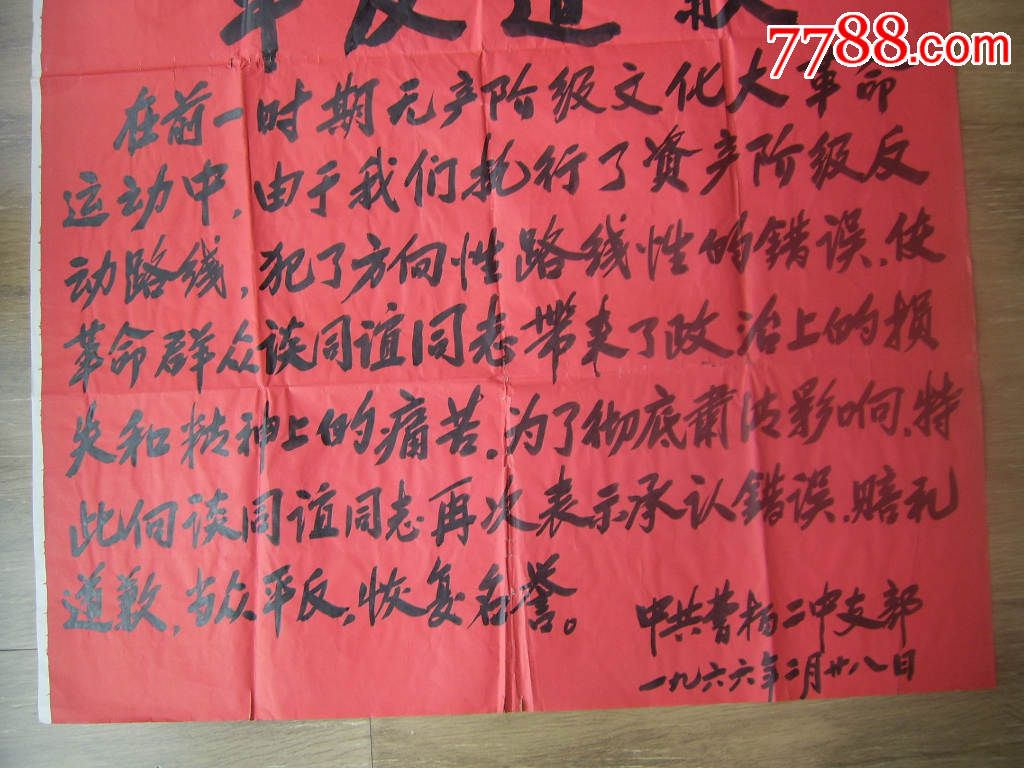 平反道歉
7788.com
在前一时期无产阶级文化大革命
运动中,由于我们执行了资产阶级反
动路线,犯了方向性路线性的错误,使
革命群众谈同谊同志带来了政治上的损
失和精神上的痛苦.为了彻底肃清影响,特
此向谈同谊同志再次表示承认错误,赔礼
道歉,当众平反,恢复名誉。
中共曹杨二中支部
一九六六年二月廿八日